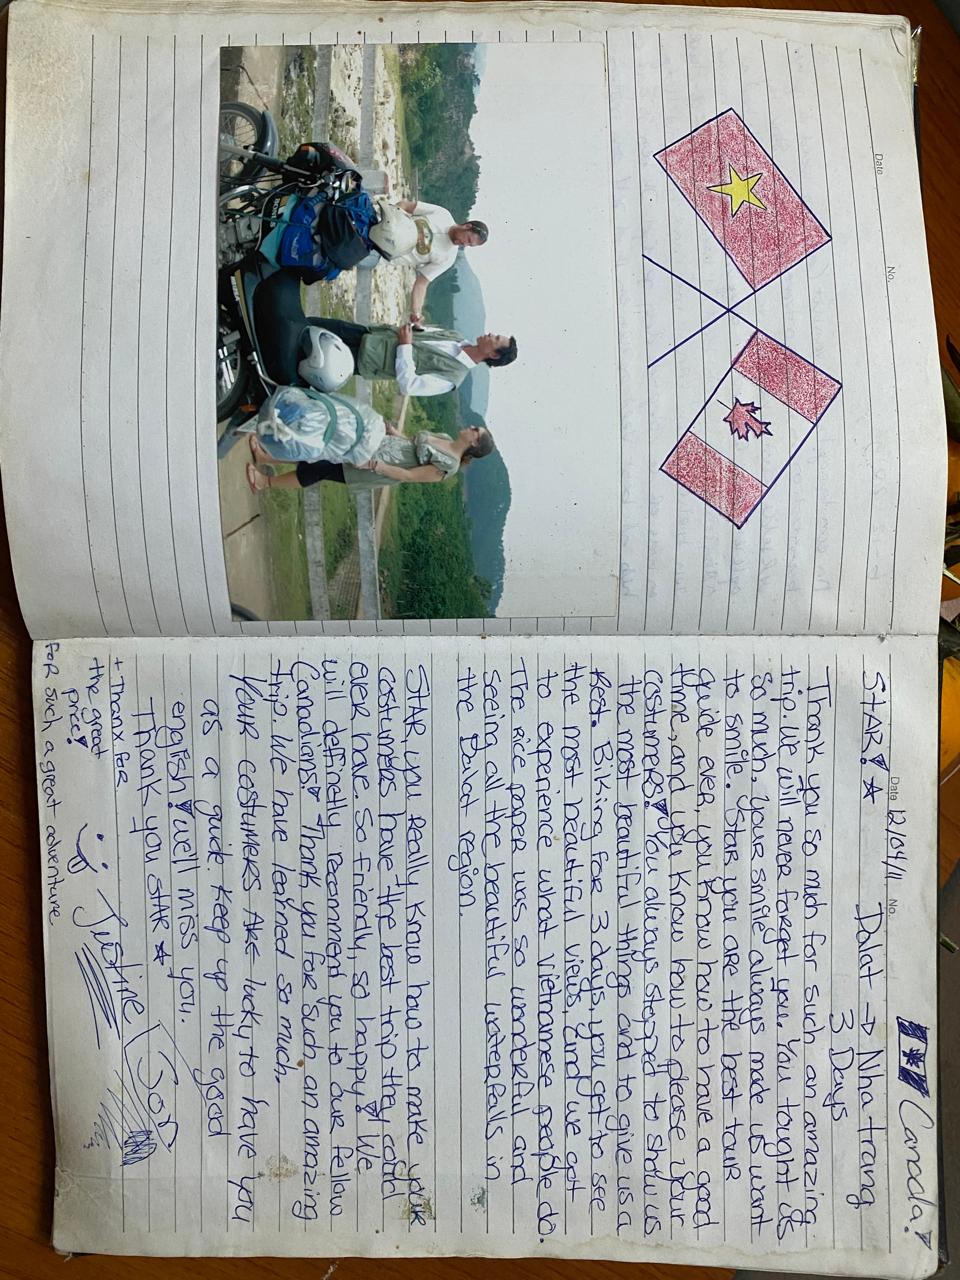 Date
No.
Canada!
Date 12/04/11 No.
STAR! Dalat → Nha trang
3 Days
Thank you so much for such an amazing
trip. We will never forget you. You tought us
so much. Your smile always made us want
to smile. Star you are the best tour
guide ever, you know how to have a good
time, and you know how to please your
costumers! You always stopped to show us
the most beautiful things and to give us a
Rest. Biking for 3 days, you get to see
the most beautiful views, and we got
to experience what vietnamese people do.
The rice paper was so wonderful and
seeing all the beautiful waterfalls in
the Dalat region.
STAR, you really know how to make your
costumers have the best trip they could
ever have. So friendly, so happy! We
will definetly recommend you to our fellow
Canadians! Thank you for such an amazing
trip. We have learned so much.
Your costumers ARE lucky to have you
as a guide. Keep up the good
english! we'll miss you.
Thank you STAR
+ Thanx for
the great
price!
Justine
for such a great adventure.